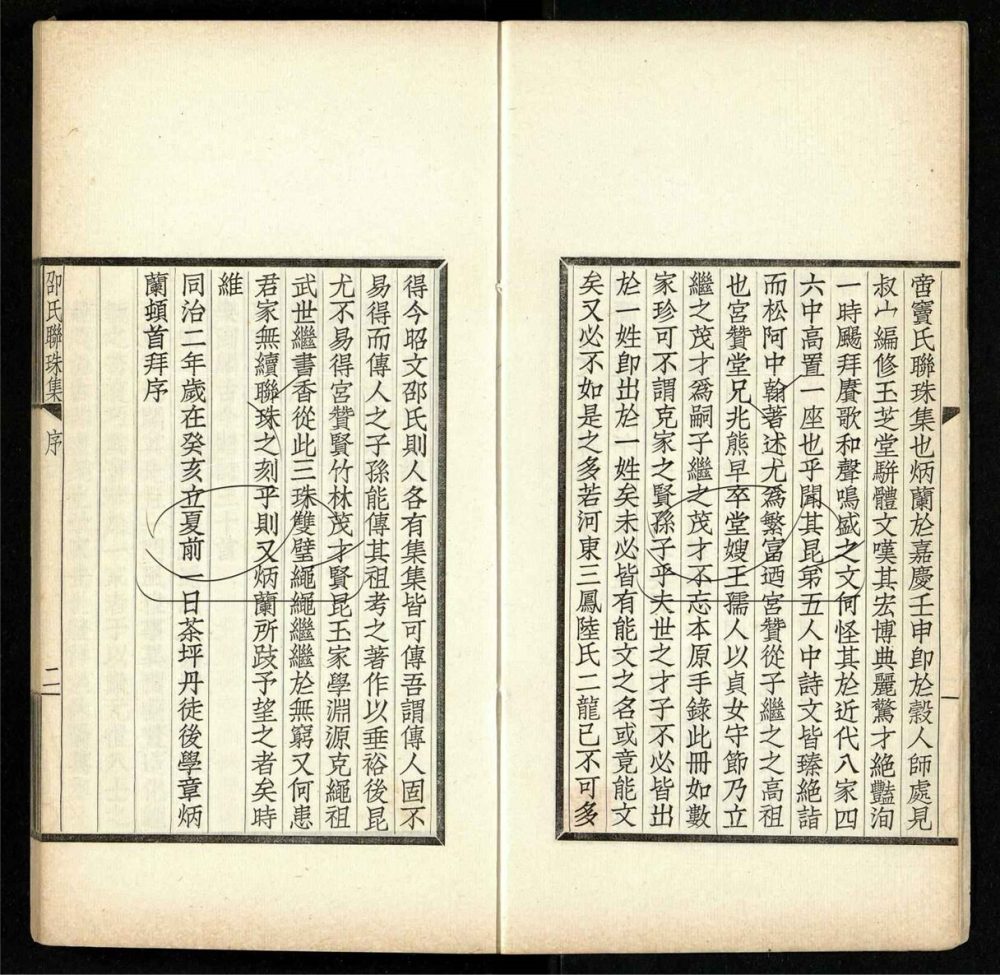 啻竇氏聯珠集也炳蘭於嘉慶壬申卽於縠人師處見
叔宀編修玉芝堂駢體文嘆其宏博典麗驚才絕豔洵
一時颺拜賡歌和聲鳴盛之文何怪其於近代八家四
六中高置一座也乎聞其昆弟五人中詩文皆臻絕詣
而松阿中翰著述尤爲繁富迺宮贊從子繼之之高祖
也宮贊堂兄兆熊早卒堂嫂王孺人以貞女守節乃立
繼之茂才爲嗣子繼之茂才不忘本原手錄此冊如數
家珍可不謂克家之賢孫子乎夫世之才子不必皆出
於一姓卽出於一姓矣未必皆有能文之名或竟能文
矣又必不如是之多若河東三鳳陸氏二龍已不可多
得今昭文邵氏則人各有集集皆可傳吾謂傳人固不
易得而傳人之子孫能傳其祖考之著作以垂裕後昆
尤不易得宮贊賢竹林茂才賢昆玉家學淵源克繩祖
武世繼書香從此三珠雙璧繩繩繼繼於無窮又何患
君家無續聯珠之刻乎則又炳蘭所跂予望之者矣時
維
同治二年歲在癸亥立夏前一日茶坪丹徒後學章炳
蘭頓首拜序
邵氏聯珠集 序 二